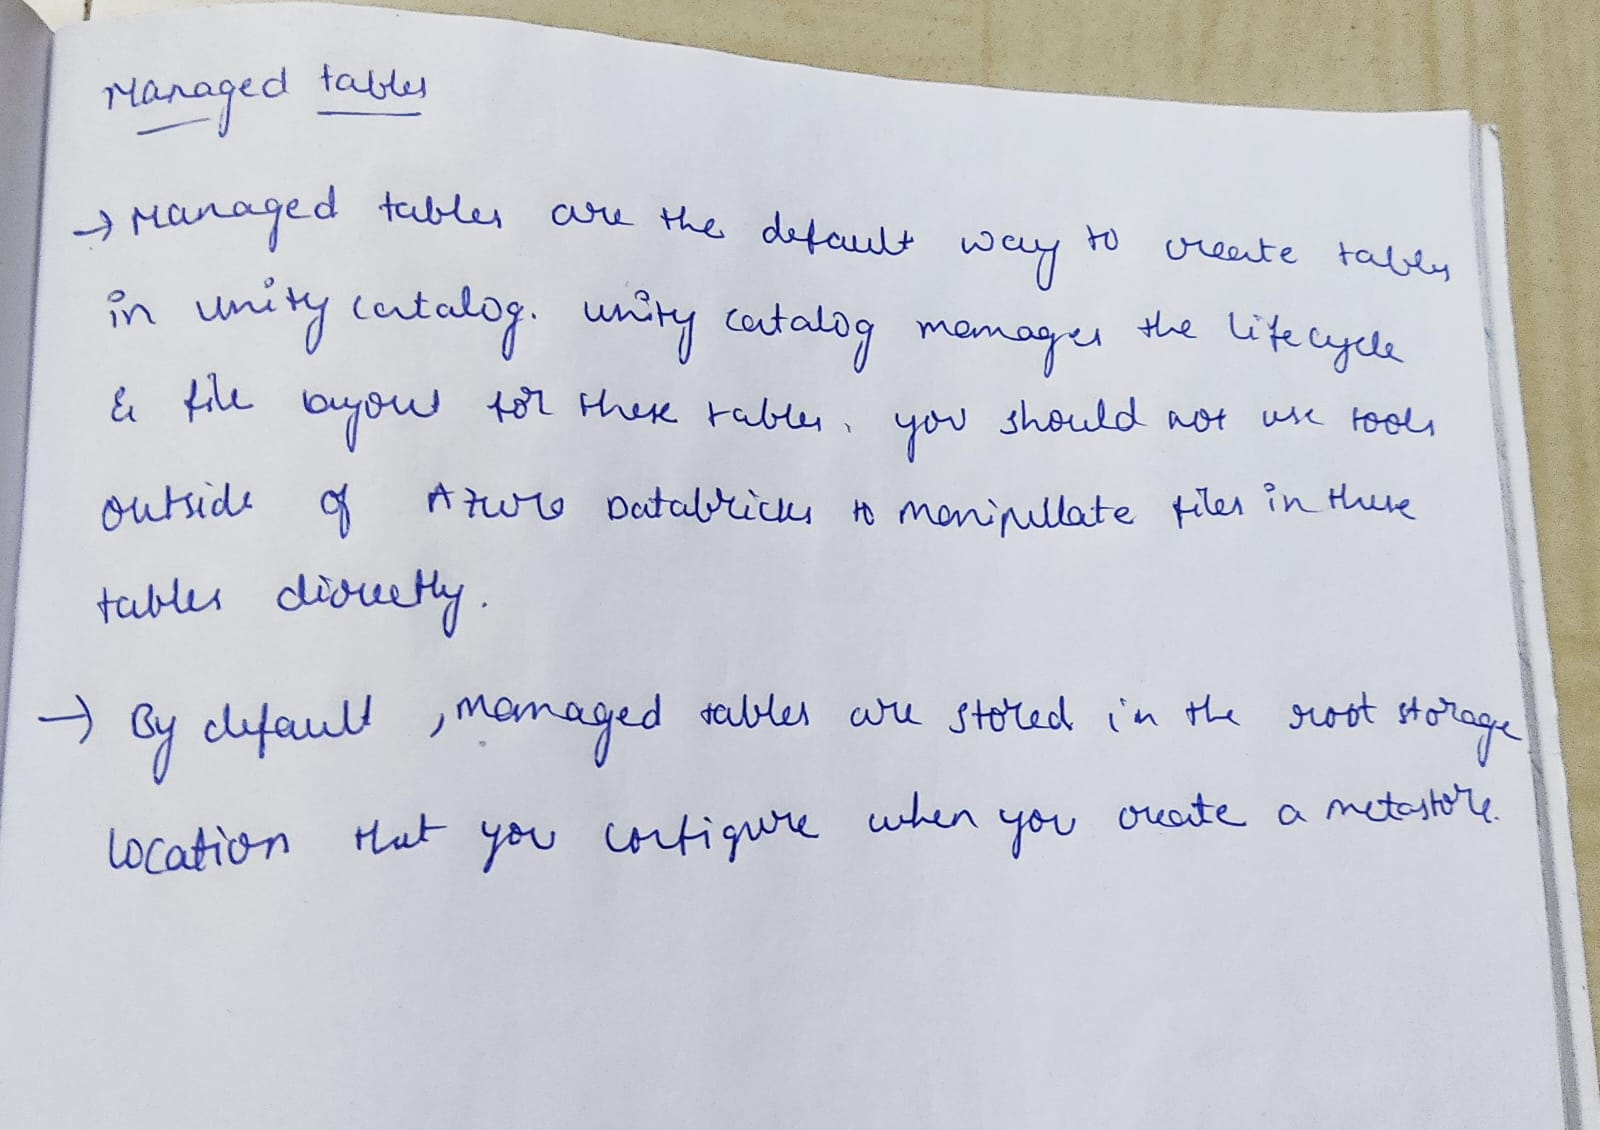 Managed tables
→ Managed tables are the default way to create tables
in unity catalog. unity catalog manages the lifecycle
& file layout for these tables. you should not use tools
outside of Azure Databricks to manipullate files in these
tables directly.
→ By default, managed tables are stored in the root storage
location that you configure when you create a metastore.